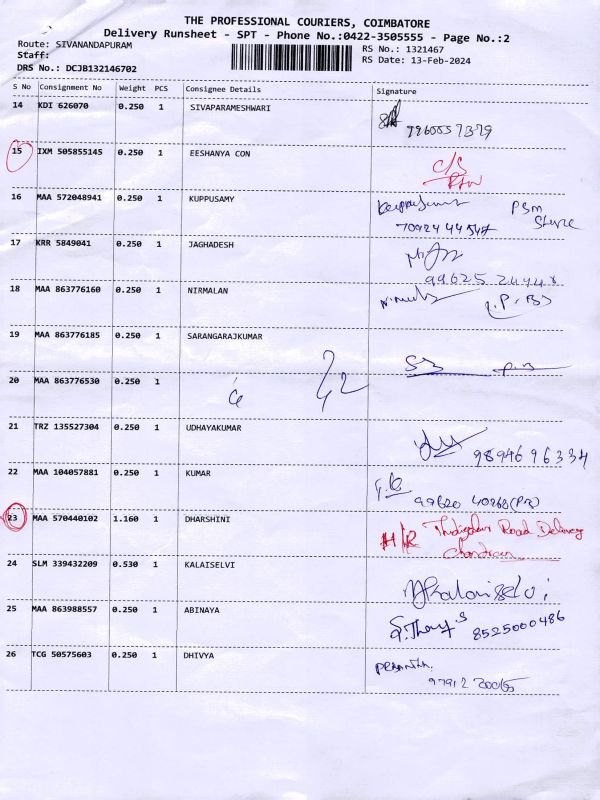 THE PROFESSIONAL COURIERS, COIMBATORE
Delivery Runsheet - SPT - Phone No.:0422-3505555 - Page No.:2
Route: SIVANANDAPURAM
RS No.: 1321467
Staff:
RS Date: 13-Feb-2024
DRS No.: DCJB132146702
S No Consignment No Weight PCS Consignee Details Signature
14 KDI 626070 0.250 1 SIVAPARAMESHWARI
15 IXM 505855145 0.250 1 EESHANYA CON
C/S
16 MAA 572048941 0.250 1 KUPPUSAMY
PSM
17 KRR 5849041 0.250 1 JAGHADESH
18 MAA 863776160 0.250 1 NIRMALAN
19 MAA 863776185 0.250 1 SARANGARAJKUMAR
20 MAA 863776530 0.250 1
21 TRZ 135527304 0.250 1 UDHAYAKUMAR
9894696334
22 MAA 104057881 0.250 1 KUMAR
23 MAA 570440102 1.160 1 DHARSHINI
Road Delivery
24 SLM 339432209 0.530 1 KALAISELVI
25 MAA 863988557 0.250 1 ABINAYA
8525000486
26 TCG 50575603 0.250 1 DHIVYA